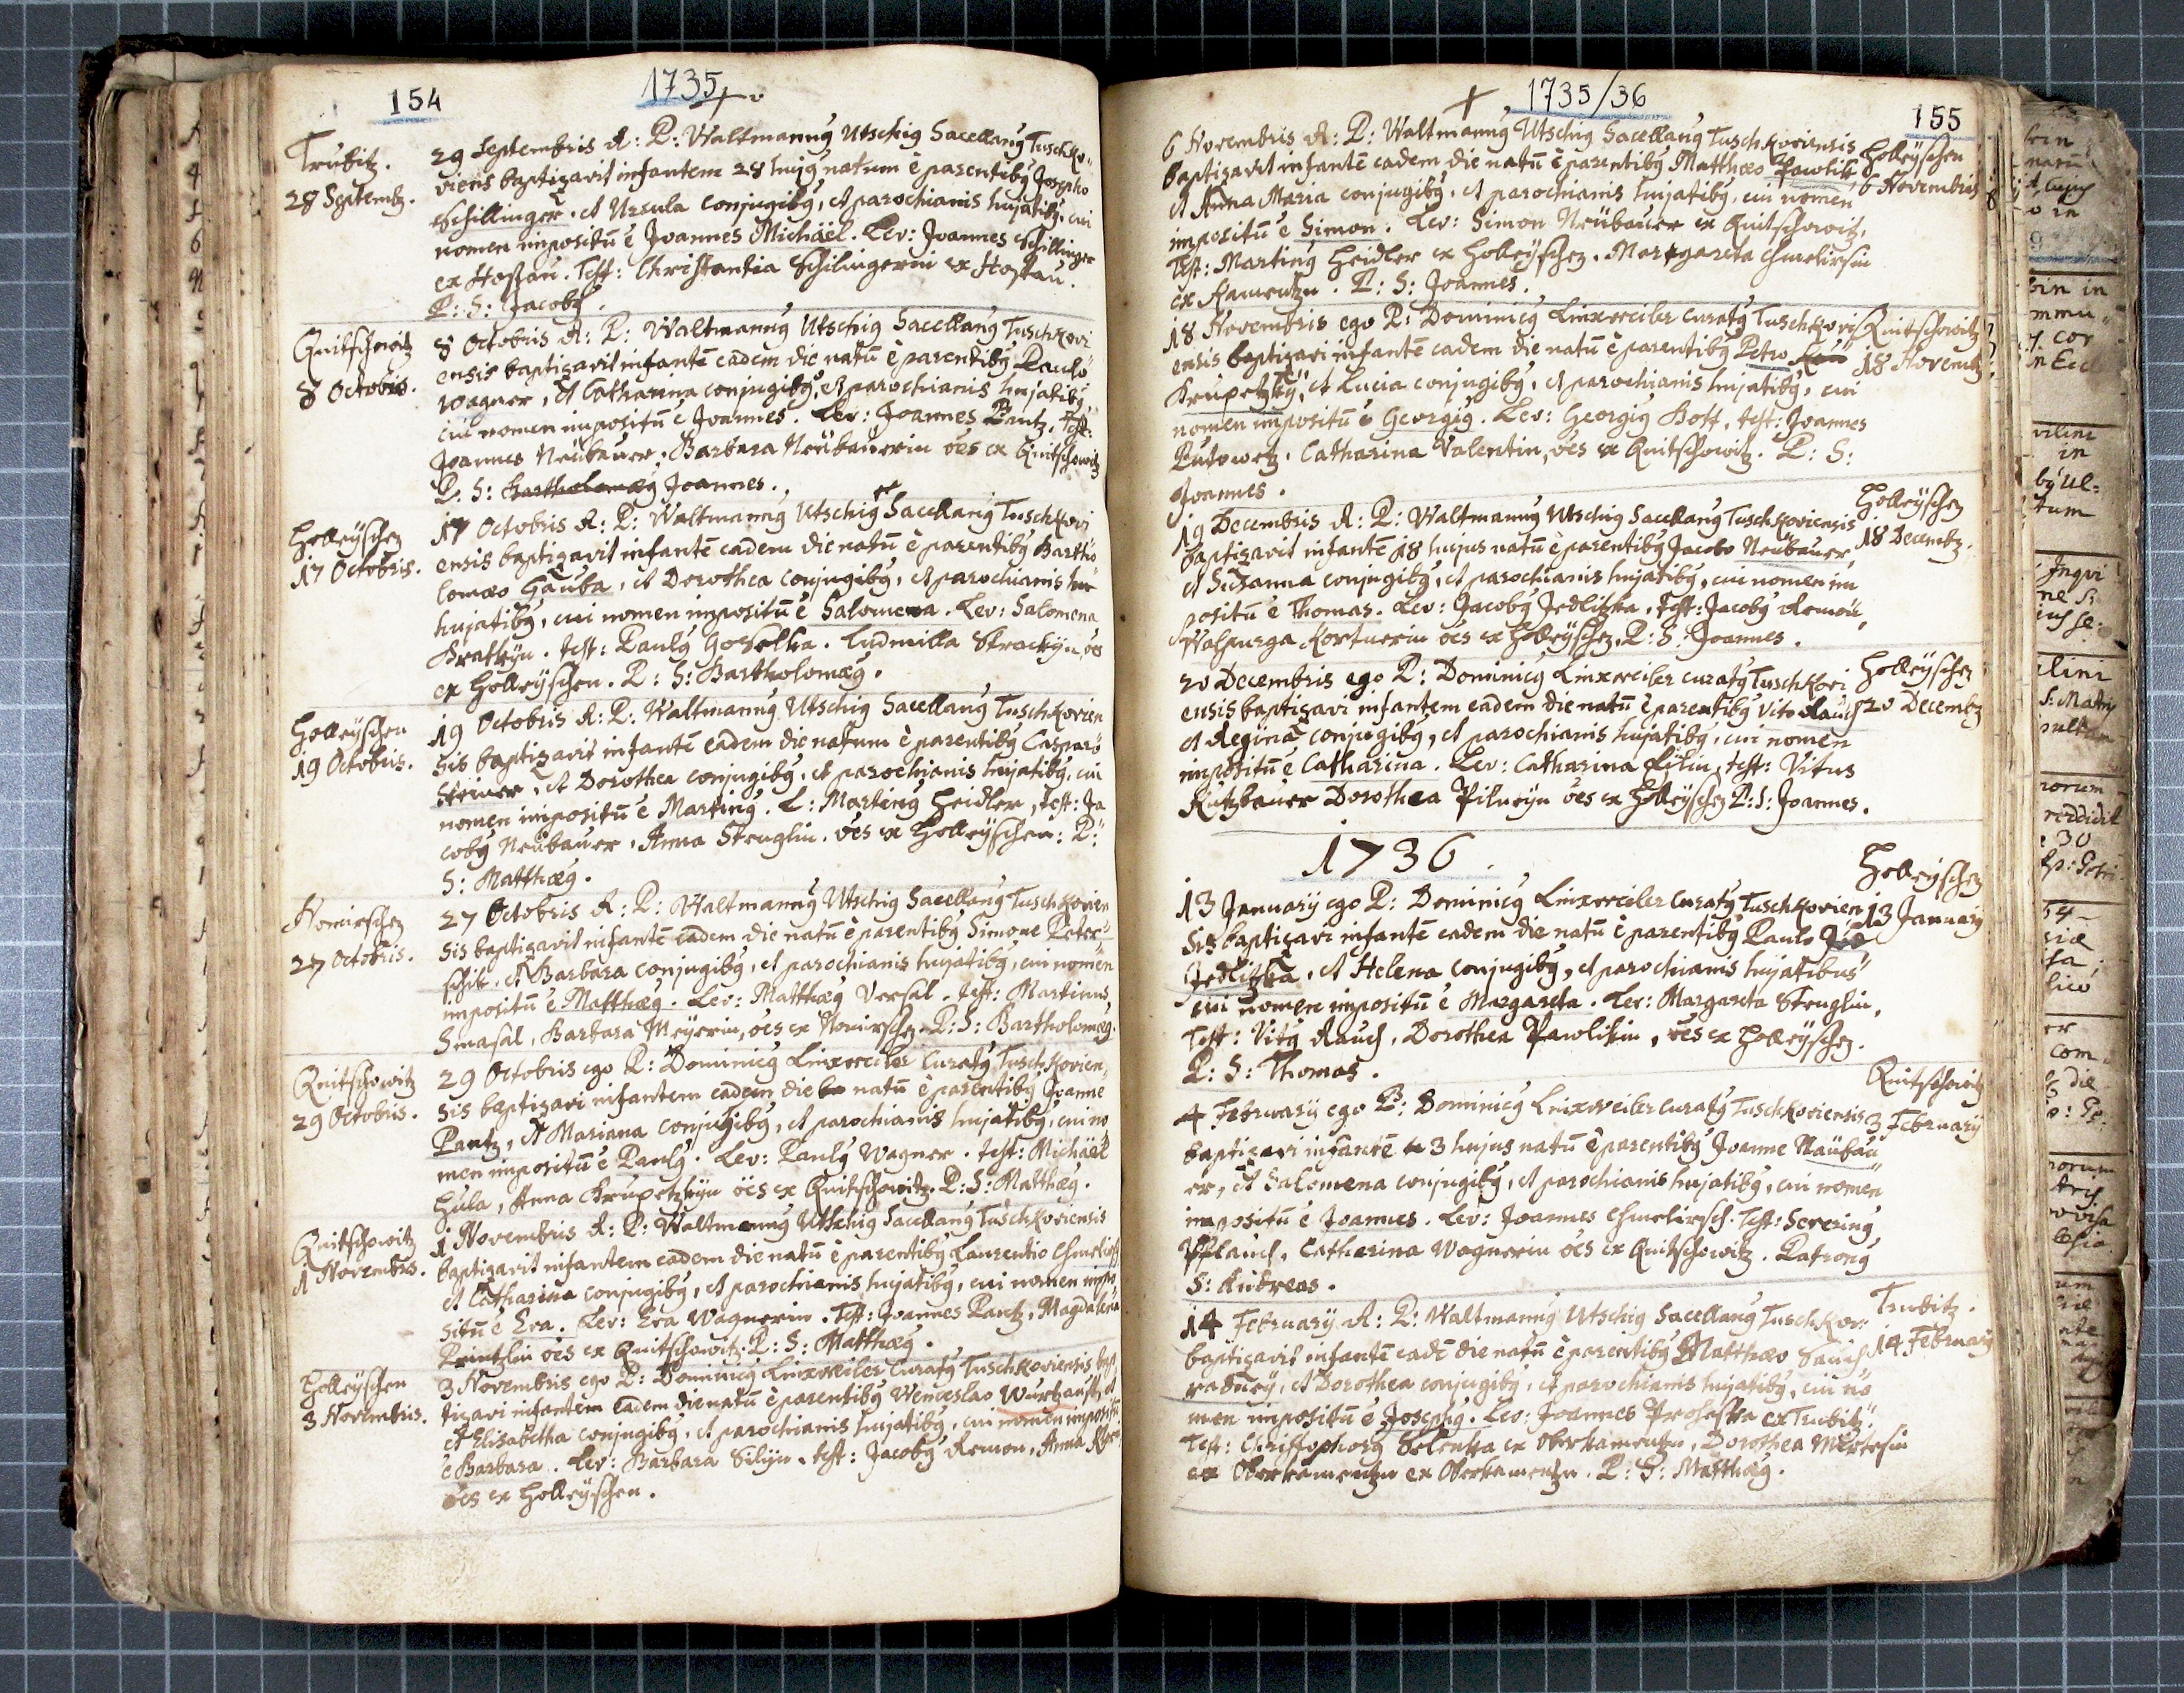 154
1735
Trubitz.
28 Septembr.
29 Septembris A: P: Waltmanng Utschig Sacellang Tuschko„
viens baptizavit infantem 28 hujg natum è parentibg Josepho
Schillinger. et Ursula conjugibg, et parochianis hujatibg, cui
nomen impositū ē Joannes Michäel. Lev: Joannes Schillinger
ex Hostau. Test: Christantia Schilingerin ex Hostau.
P: S: Jacobg.
Quitschowitz
8 Octobris.
8 Octobris A: P: Waltmanng Utschig Sacellang Tuschkovi
ensis baptizavit infantē eadem die natū è parentibg Paulo
Wagner, et Catharina conjugibg, et parochianis hujatibg
cui nomen impositū ē Joannes. Lev: Joannes Pantz, test:
Joannes Neübauer, Barbara Neübauerin oēs ex Quitschowitz
P: S: Bartholomæg Joannes.
Holleÿschen
17 Octobris.
17 Octobris A: P: Waltmanng Utschig Sacellang Tuschkovi
ensis baptizavit infantē eadem die natū è parentibg Bartho
lomæo Gauba, et Dorothea conjugibg, et parochianis hu
hujatibg, cui nomen impositū ē Salomena. Lev: Salomena
Bratkÿn. test: Paulg Goselka. Ludmilla Strackÿn, oēs
ex Holleÿschen. P: S: Bartholomæg.
Holleÿschen
19 Octobris.
19 Octobris A: P: Waltmanng Utschig Sacellang Tuschkovien
sis baptizavit infantē eadem die natum è parentibg Casparo
Steiner, et Dorothea conjugibg, et parochianis hujatibg, cui
nomen impositū ē Marting. L: Marting Heidler, test: Ja
cobg Neübauer, Anna Stenglin. oēs ex Holleÿschen: P:
S: Matthæg.
Honirschen
27 Octobris.
27 Octobris A: P: Waltmanng Utschig Sacellang Tuschkovien
sis baptizavit infantē eadem die natū è parentibg Simone Peter
schik. et Barbara conjugibg, et parochianis hujatibg, cui nomen
impositū ē Matthæg. Lev: Matthæg Versal. test: Martinus
Smasal, Barbara Meÿerin, oēs ex Honirschen. P: S: Bartholomæg.
Quitschowitz
29 Octobris.
29 Octobris ego P: Dominicg Linxweiler Curatg Tuschkovien„
sis baptizavi infantem eadem die natū è parentibg Joanne
Pantz, et Mariana conjugibg, et parochianis hujatibg, cui no
men impositū ē Paulg. Lev: Paulg Wagner. test: Michäel
Hula, Anna Krupetzkÿn oēs ex Quitschowitz. P: S: Matthæg.
Quitschowitz
1 Novembris.
1 Novembris A: P: Waltmanng Utschig Sacellang Tuschkoviensis
baptizavit infantem eadem die natū è parentibg Laurentio Chmelirsch
et Catharina conjugibg, et parochianis hujatibg, cui nomen impo
situ ē Eva. Lev: Eva Wagnerin. Test: Joannes Pantz, Magdalena
Printzlin oēs ex Quitschowitz. P: S: Matthæg.
Holleÿschen
3 Novembris.
3 Novembris ego P: Dominicg Linxweiler Curatg Tuschkoviensis bap
tizavi infantem eadem die natū è parentibg Wenceslao Wurtzaust, et
et Elisabetha conjugibg, et parochianis hujatibg, cui nomen impositū
ē Barbara. Lev: Barbara Silÿn. test: Jacobg Remon, Anna
oēs ex Holleÿschen.
1735/36
155
6 Novembris A: P: Waltmanng Utschig Sacellang Tuschkoviensis
baptizavit infantē eadem die natū è parentibg Matthæo Pawlik
et Anna Maria conjugibg, et parochianis hujatibg, cui nomen
impositū ē Simon. Lev: Simon Neübauer ex Quitschowitz,
Test: Marting Heidler ex Holleÿschen. Margareta Chmelirsin
ex Kamentzn. P: S: Joannes.
Holleÿschen
6 Novembris
18 Novembris ego P: Dominicg Linxweiler Curatg Tuschkovi
ensis baptizavi infantē eadem die natū è parentibg Petro
Krupetzkÿ, et Lucia conjugibg, et parochianis hujatibg, cui
nomen impositū ē Georgig. Lev: Georgig Bost, test: Joannes
Pudowetz. Catharina Valentin, oēs ex Quitschowitz. P: S:
Joannes.
Quitschowitz
18 Novembr
19 Decembris A: P: Waltmanng Utschig Sacellang Tuschkoviensis
baptizavit infantē 18 hujus natū è parentibg Jacobo Neübauer
et Susanna conjugibg, et parochianis hujatibg, cui nomen im
positū ē Thomas. Lev: Jacobg Jedlitzka, Test: Jacobg Remon,
Walpurga Kortnerin oēs ex Holleÿschen. P: S: Joannes.
Holleÿschen
18 Decembr.
20 Decembris ego P: Dominicg Linxweiler curatg Tuschkovi
ensis baptizavi infantem eadem die natū è parentibg Vito Rauch
et Regina conjugibg, et parochianis hujatibg, cui nomen
impositū ē Catharina. Lev: Catharina Filin, test: Vitus
Kutzbauer Dorothea Pilneÿn oēs ex Holleÿschen P: S: Joannes.
Holleÿschen
20 Decembr
1736
13 Januarÿ ego P: Dominicg Linxweiler Curatg Tuschkovien
sis baptizavi infantē eadem die natū è parentibg Paulo
Jedlitzka, et Helena conjugibg, et parochianis hujatibus
cui nomen impositū ē Margareta. Lev: Margareta Stenglin,
Test: Vitg Rauch, Dorothea Pawlikin, oēs ex Holleÿschen.
P: S: Thomas.
Holleÿschen
13 Januarÿ
4 Februarÿ ego P: Dominicg Linxweiler curatg Tuschkoviensis
baptizavi infantē 3 hujus natū è parentibg Joanne Naübau
er, et Salomena conjugibg, et parochianis hujatibg, cui nomen
impositū ē Joannes. Lev: Joannes Chmelirsch. Test: Severing
Pflauch, Catharina Wagnerin oēs ex Quitschowitz. Patrong
S: Andreas.
Quitschowitz
3 Februarÿ
14 Februarÿ A: P: Waltmanng Utschig Sacellang Tuschkov:
baptizavit infantē eadē die natū è parentibg Matthæo Sauch
radneÿ, et Dorothea conjugibg, et parochianis hujatibg, cui no
men impositū ē Josephg. Lev: Joannes Proseska ex Trubitz.
Test: Christophorg Selenka ex Oberkamentzn, Dorothea Mertesin
ex Oberkamentzn ex Oberkamentzn. P: S: Matthæg.
Trubitz.
14 Februarÿ